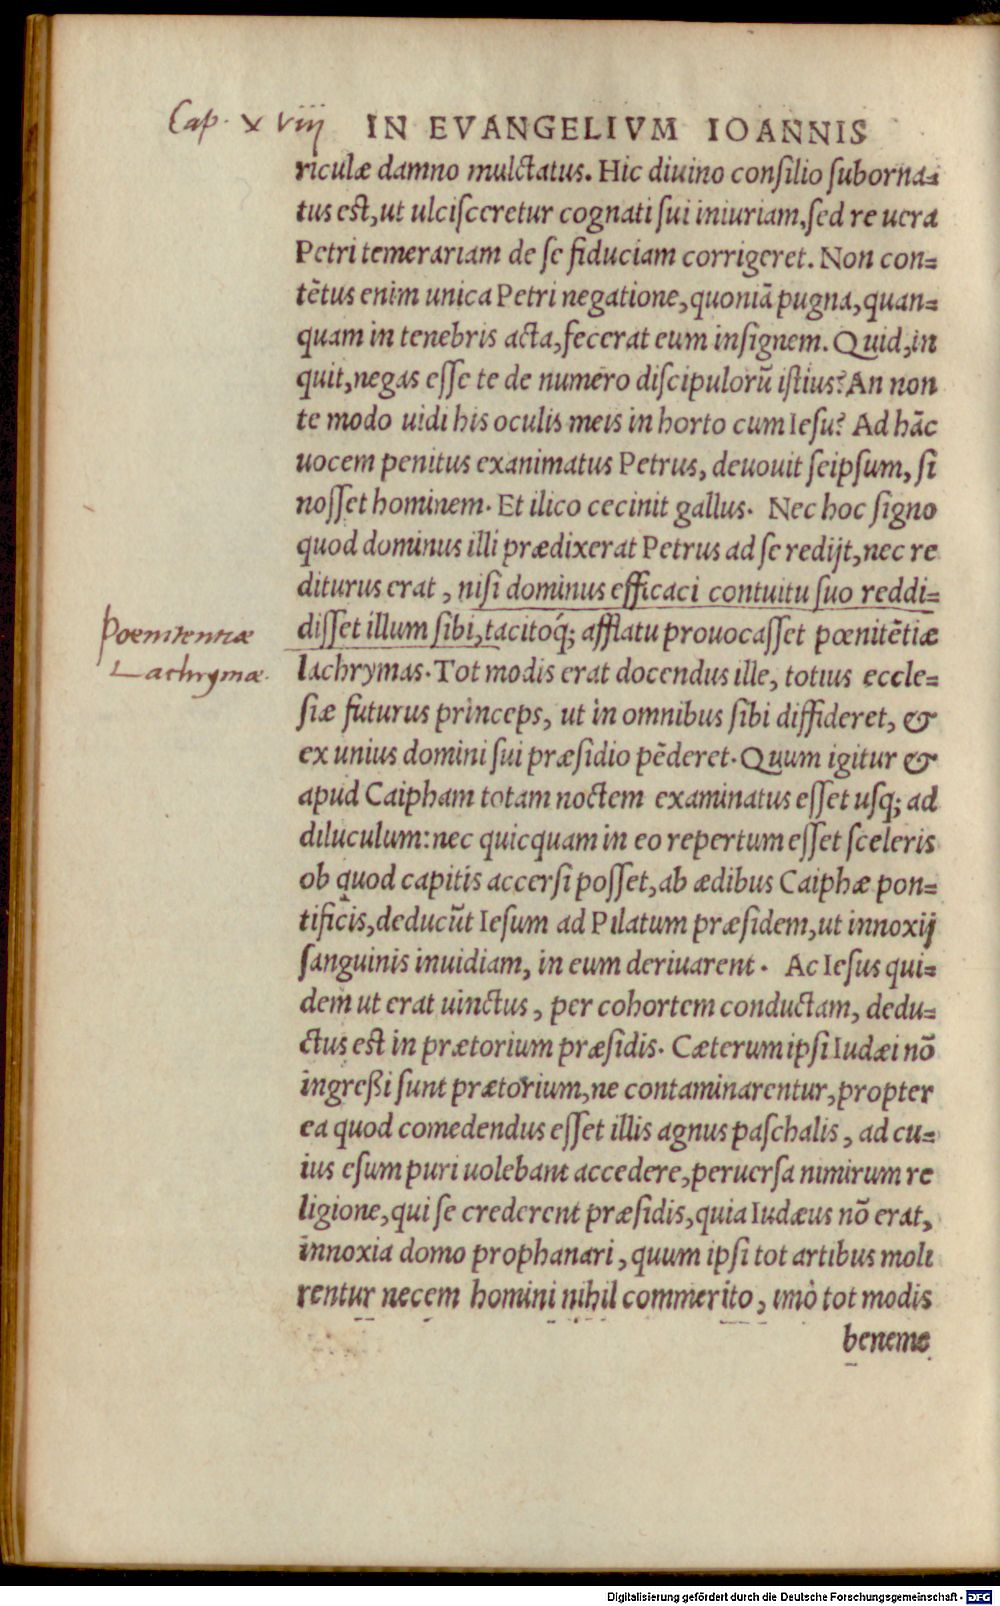 Cap. XViij IN EVANGELIVM IOANNIS
riculæ damno mulctatus. Hic diuino consilio suborna-
tus est, ut ulcisceretur cognati sui iniuriam, sed re uera
Petri temerariam de se fiduciam corrigeret. Non con-
tētus enim unica Petri negatione, quoniā pugna, quan-
quam in tenebris acta, fecerat eum insignem. Quid, in
quit, negas esse te de numero discipulorū istius? An non
te modo uidi his oculis meis in horto cum Iesu? Ad hāc
uocem penitus exanimatus Petrus, deuouit seipsum, si
nosset hominem. Et ilico cecinit gallus. Nec hoc signo
quod dominus illi prædixerat Petrus ad se redijt, nec re
diturus erat, nisi dominus efficaci contuitu suo reddi-
disset illum sibi, tacitoq́; afflatu prouocasset pœnitētiæ
Poenitentiæ
Lachrymæ.
lachrymas. Tot modis erat docendus ille, totius eccle-
siæ futurus princeps, ut in omnibus sibi diffideret, &
ex unius domini sui præsidio pēderet. Quum igitur &
apud Caipham totam noctem examinatus esset usq; ad
diluculum: nec quicquam in eo repertum esset sceleris
ob quod capitis accersi posset, ab ædibus Caiphæ pon-
tificis, deducūt Iesum ad Pilatum præsidem, ut innoxij
sanguinis inuidiam, in eum deriuarent. Ac Iesus qui-
dem ut erat uinctus, per cohortem conductam, dedu-
ctus est in prætorium præsidis. Cæterum ipsi Iudæi nō
ingreßi sunt prætorium, ne contaminarentur, propter
ea quod comedendus esset illis agnus paschalis, ad cu-
ius esum puri uolebant accedere, peruersa nimirum re
ligione, qui se crederent præsidis, quia Iudæus nō erat,
innoxia domo prophanari, quum ipsi tot artibus moli
rentur necem homini nihil commerito, imò tot modis
beneme
Digitalisierung gefördert durch die Deutsche Forschungsgemeinschaft - DFG